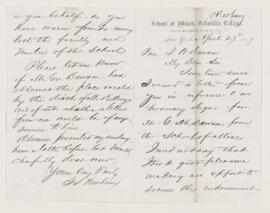 in your behalf as you
have warm friends among
both the faculty and
trustees of the School
Please let me know
if Mr Geo Dawson has
obtained the place vacated
by the death of
and whether a letter
from me would be of any
service to him
a letter before but
cheerfully does now
Yours Very Truly
J S Newberry
School of Mines, Columbia College,
New York, April 27th
Prin J W Dawson
My Dear Sir
Some time since
I received a letter from
you in reference to an
honorary degree for
Mr G M Dawson from
the School of Mines
I need not say that
I took great pleasure
making an effort to
secure the endorsement